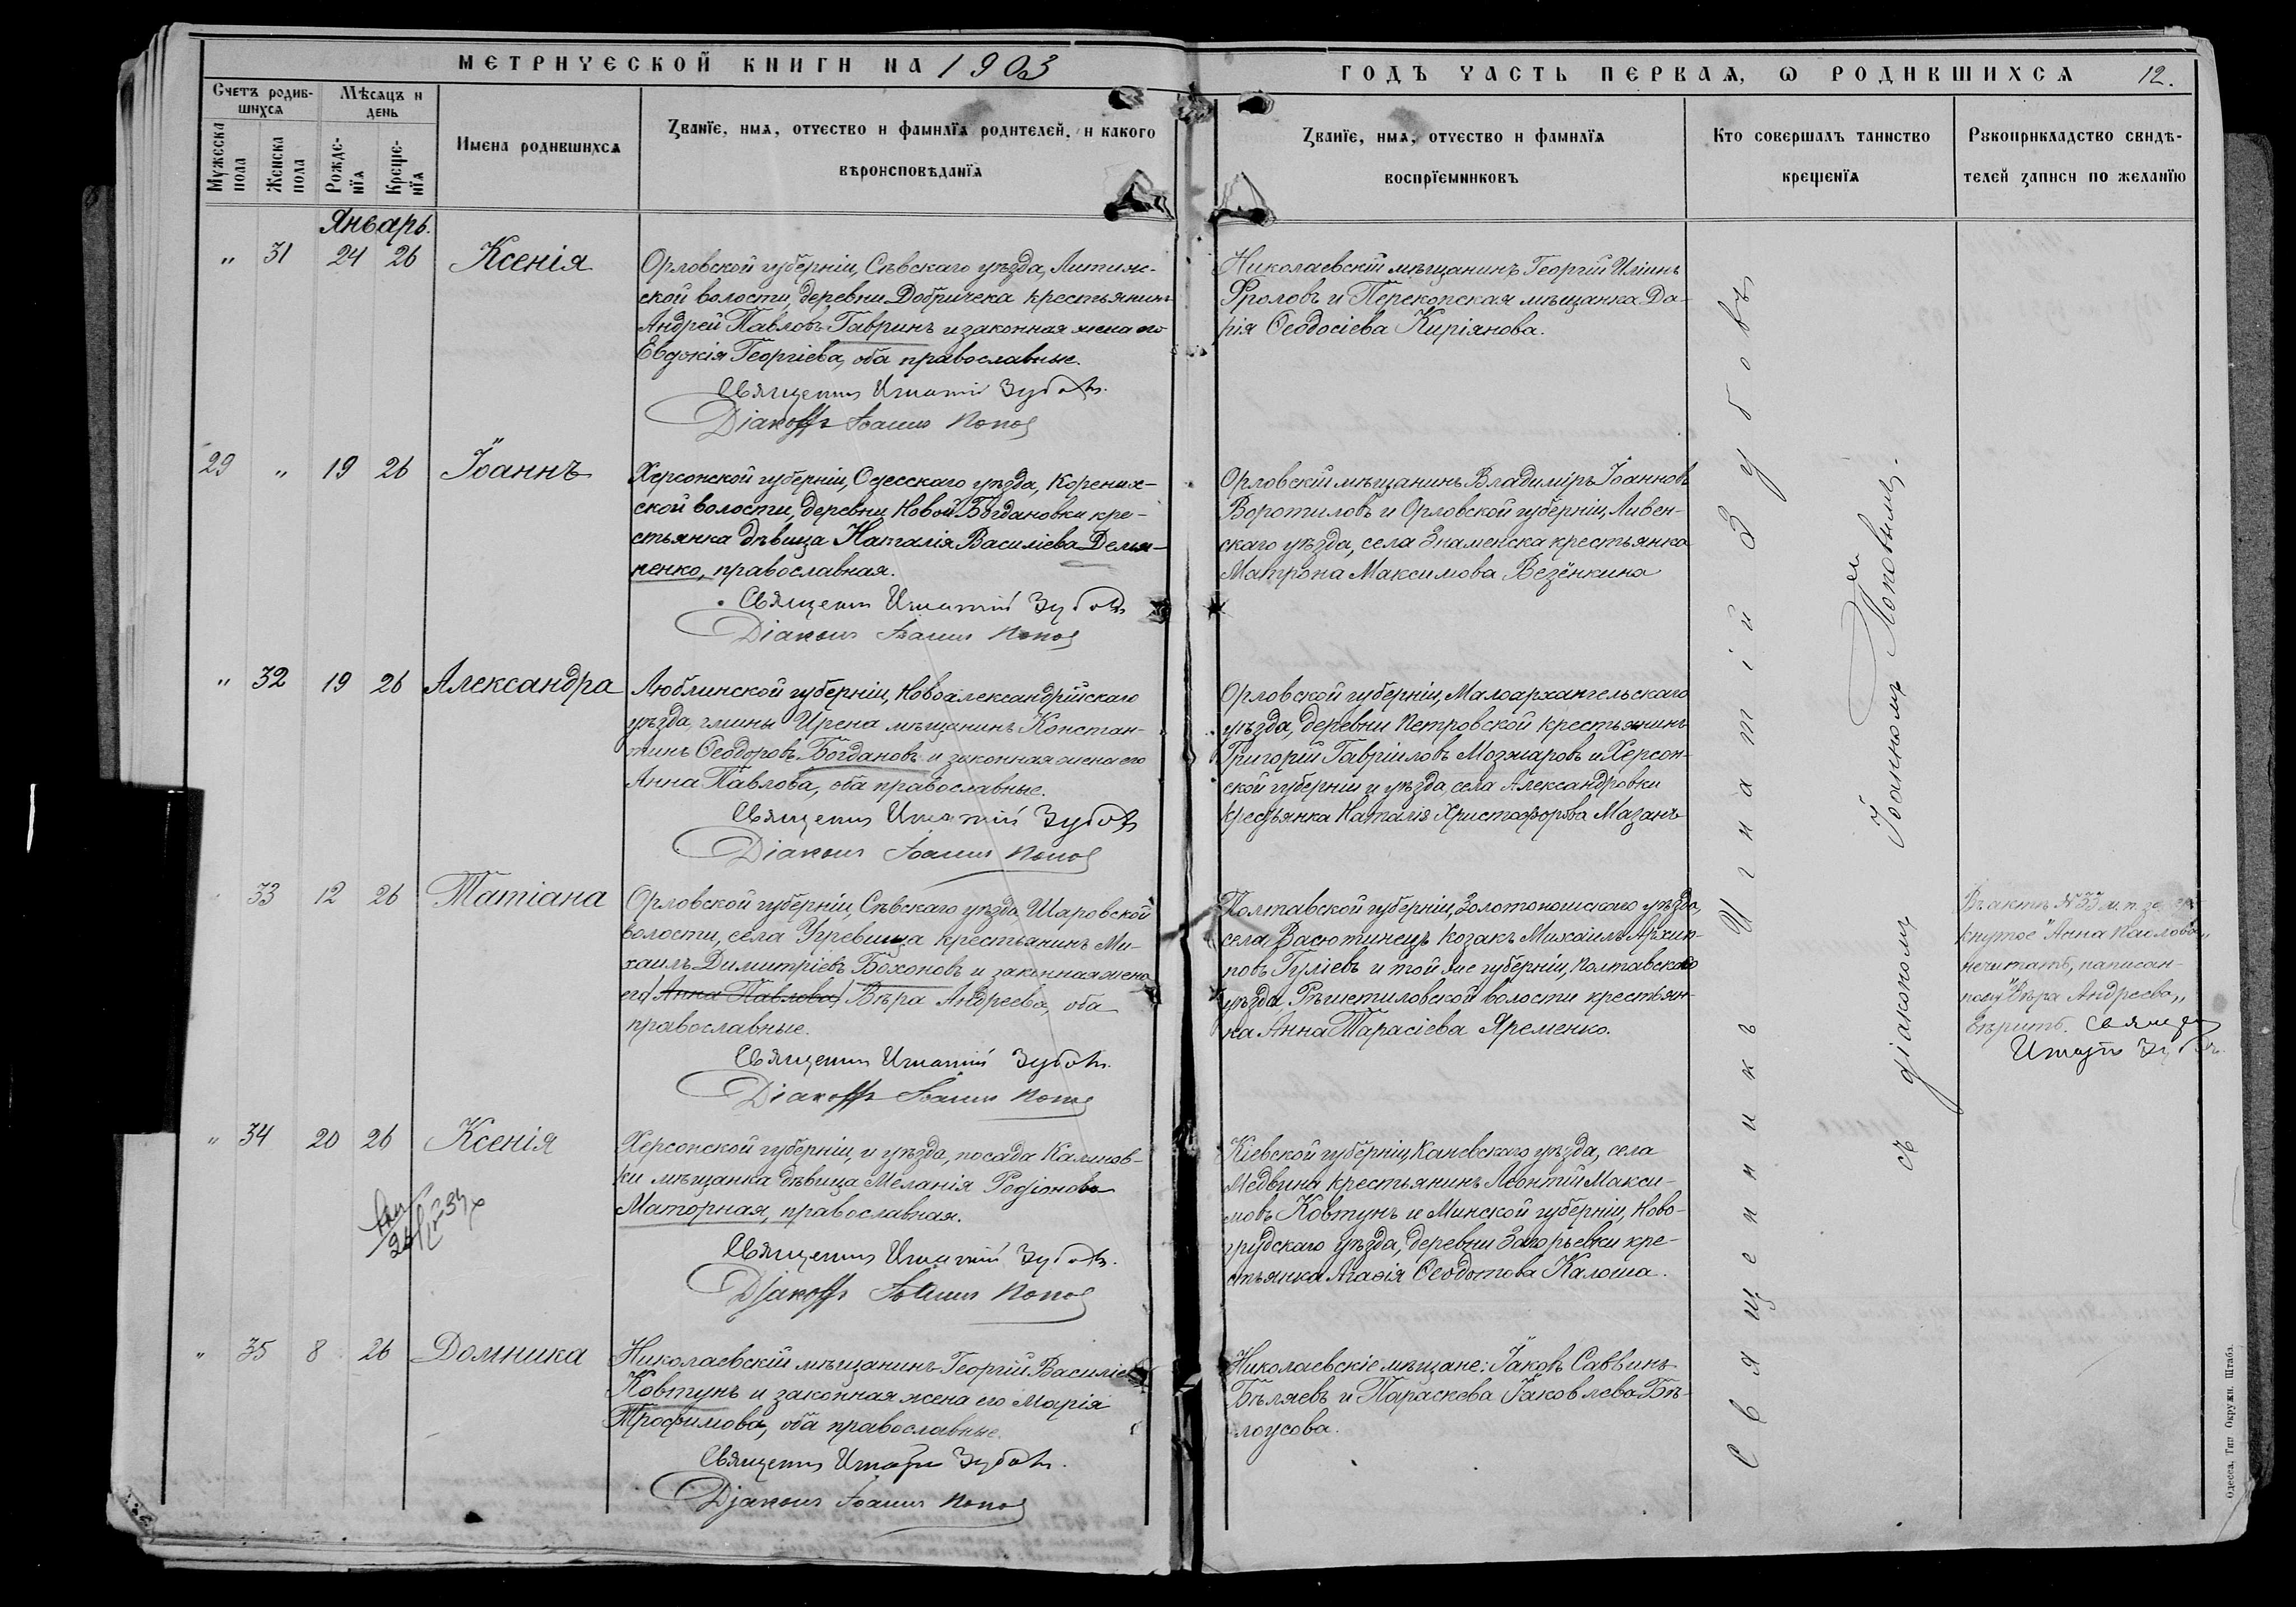 МЕТРИЧЕСКОЙ КНИГИ НА 1903
ГОДЪ ЧАСТЬ ПЕРВАЯ, Ѡ РОДИВШИХСЯ 12.
Счетъ родив-
шихся
Мѣсяцъ и
день
Мужеска
пола
Женска
пола
Рожде-
нія
Креще-
нія
Имена родившихся
Званїе, имя, отчество и фамилїя родителей, и какого
вѣроисповѣданїя
Званїе, имя, отчество и фамилїя
воспрїемниковъ
Кто совершалъ таинство
крещенїя
Рукоприкладство свидѣ-
телей записи по желанїю
Январь.
„ 31 24 26 Ксенія
Орловской губерніи, Сѣвскаго уѣзда, Литиж-
ской волости, деревни Добричека крестьянинъ
Андрей Павловъ Гавринъ и законная жена его
Евдокія Георгіева, оба православные.
Священникъ Игнатій Зубовъ.
Діаконъ Іоаннъ Поповъ
Николаевскій мѣщанинъ Георгій Иліинъ
Фроловъ и Перекопская мѣщанка Да-
рія Ѳеодосіева Киріянова.
29 „ 19 26 Іоаннъ
Херсонской губерніи, Одесскаго уѣзда, Корених-
ской волости, деревни Новой Богдановки кре-
стьянка дѣвица Наталія Василіева Демя-
ненко, православная.
Священникъ Игнатій Зубовъ
Діаконъ Іоаннъ Поповъ
Орловскій мѣщанинъ Владиміръ Іоанновъ
Воротиловъ и Орловской губерніи, Ливен-
скаго уѣзда, села Знаменска крестьянка
Матрона Максимова Везёнкина
„ 32 19 26 Александра
Люблинской губерніи, Новоалександрійскаго
уѣзда, гмины Ирена мѣщанинъ Констан-
тинъ Ѳеодоровъ Богдановъ и законная жена его
Анна Павлова, оба православные.
Священникъ Игнатій Зубовъ
Діаконъ Іоаннъ Поповъ
Орловской губерніи, Малоархангельскаго
уѣзда, деревни Петровской крестьянинъ
Григорій Гавріиловъ Мозжаровъ и Херсон-
ской губерніи и уѣзда, села Александровки
крестьянка Наталія Христофорова Мазанъ
33 12 26 Татіана
Орловской губерніи, Сѣвскаго уѣзда, Шаровской
волости, села Угревища крестьянинъ Ми-
хаилъ Димитріевъ Бохоновъ и законная жена
его /Анна Павлова/ Вѣра Андреева, оба
православные.
Священникъ Игнатій Зубовъ.
Діаконъ Іоаннъ Поповъ
Полтавской губерніи, Золотоношскаго уѣзда,
села Васютинецъ козакъ Михаилъ Архип-
повъ Гуліевъ и той же губерніи, Полтавскаго
уѣзда, Рѣшетиловской волости крестьян-
ка Анна Тарасіева Яременко.
Въ актѣ № 33 м. п. зачер-
кнутое „Анна Павлова„
не читать, написан-
ному „Вѣра Андреева„
вѣрить. Священникъ
Игнатій Зубовъ.
„ 34 20 26 Ксенія
Херсонской губерніи, и уѣзда, посада Калинов-
ки мѣщанка дѣвица Меланія Родіонова
Маторная, православная.
Священникъ Игнатій Зубовъ.
Діаконъ Іоаннъ Поповъ
Кіевской губерніи, Каневскаго уѣзда, села
Медвина крестьянинъ Леонтій Макси-
мовъ Ковтунъ и Минской губерніи, Ново-
грудскаго уѣзда, деревни Загорьевки кре-
стьянка Агаѳія Ѳеодотова Калоша.
„ 35 8 26 Домника
Николаевскій мѣщанинъ Георгій Василіевъ
Ковтунъ и законная жена его Марія
Трофимова, оба православные.
Священникъ Игнатій Зубовъ.
Діаконъ Іоаннъ Поповъ
Николаевскіе мѣщане: Іаковъ Саввинъ
Бѣляевъ и Параскева Іаковлева Бѣ-
лоусова.
Священникъ Игнатій Зубовъ
съ діакономъ Іоанномъ Поповымъ.
Одесса. Тип. Окружн. Штаба.